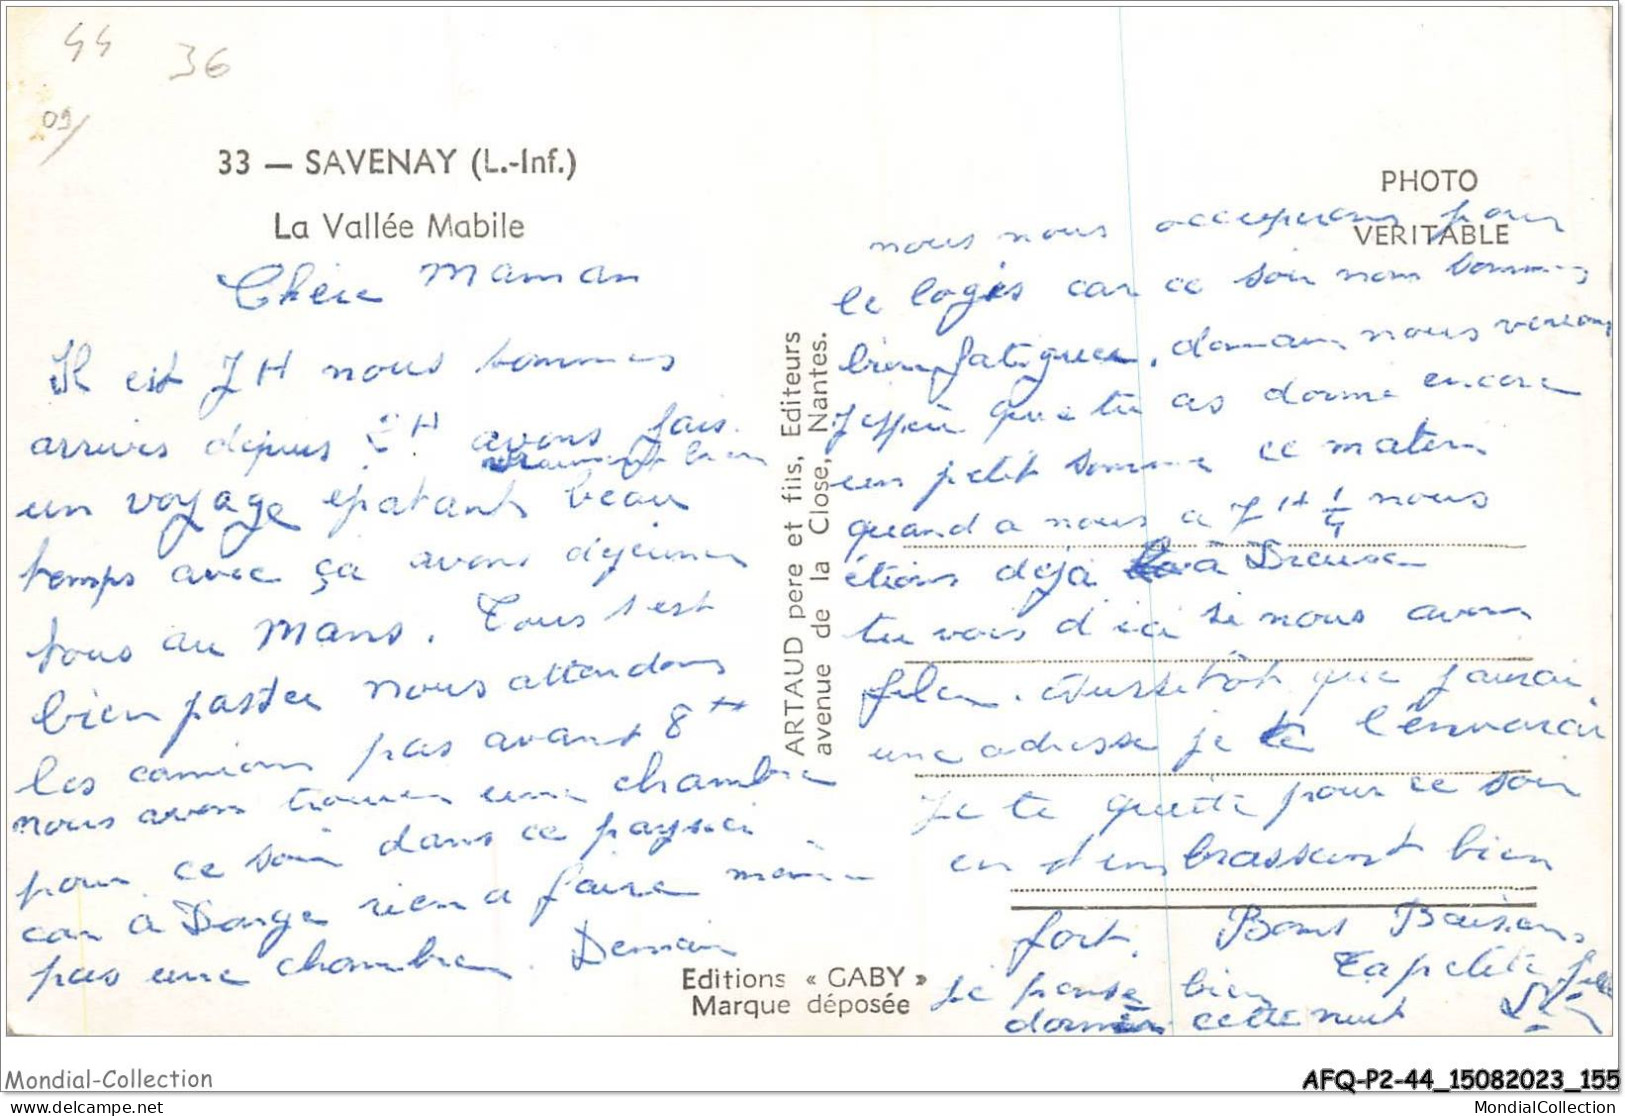 44
36
09/
33 — SAVENAY (L.-Inf.)
La Vallée Mabile
Chère Maman
Il est 7H nous sommes
arrivés depuis 2H. avons fais
vraiment bien
un voyage épatant beau
temps avec ça avons déjeuner
tous au Mans. Tous s'est
bien passée nous attendons
les camions pas avant 8H
nous avons trouver une chambre
pour ce soir dans ce pays ci
car à Donge rien a faire même
pas une chambre. Demain
ARTAUD pere et fils, Editeurs
avenue de la Close, Nantes.
Editions « GABY »
Marque déposée
PHOTO
VERITABLE
nous nous occuperons pour
le logis car ce soir nous sommes
bien fatiguée. demain nous verrons
J'espère que tu as dormie encore
un petit somme ce matin
quand a nous a 7H 1/4 nous
étions déjà à Dreux
tu vois d'ici si nous avons
filer. Aussitôt que j'aurai
une adresse je te l'enverai
Je te quitte pour ce soir
en t'embrassant bien
fort. Bons Baisers
Ta petite fille
Je pense bien
dormir cette nuit
Mondial-Collection
delcampe.net
AFQ-P2-44_15082023_155
MondialCollection